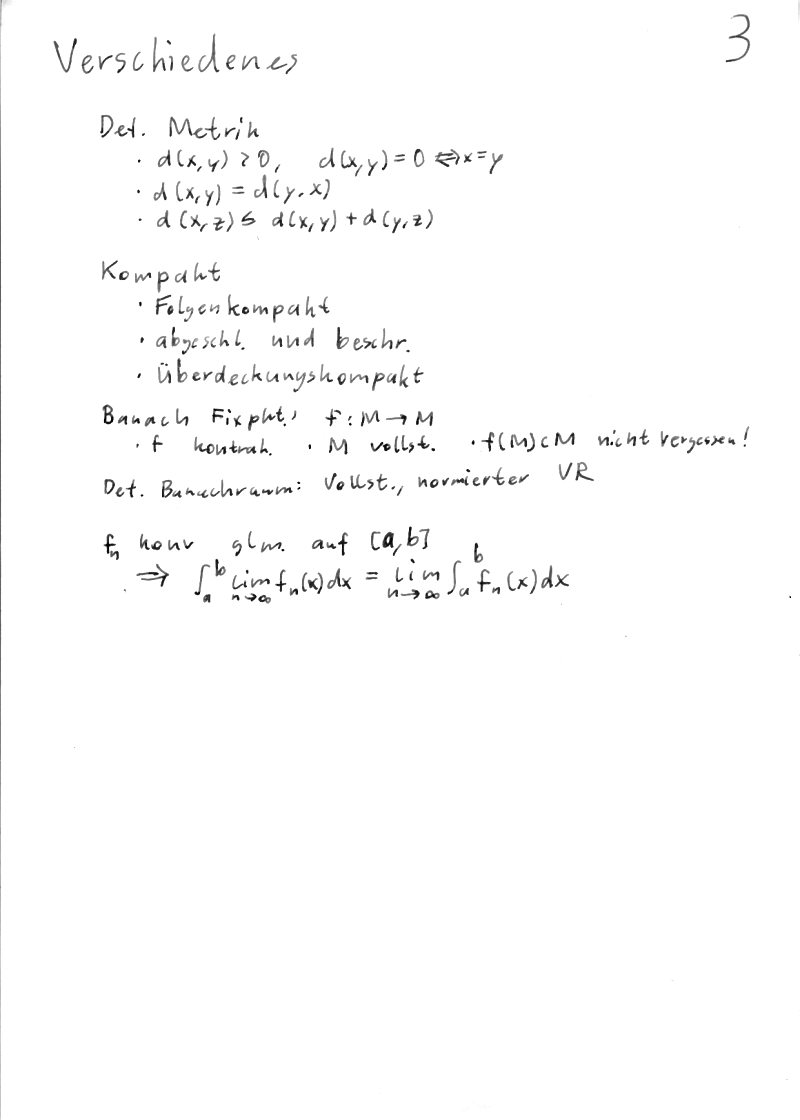 Verschiedenes 3
Def. Metrik
· d(x,y) ≥ 0, d(x,y) = 0 ⇔ x=y
· d(x,y) = d(y,x)
· d(x,z) ≤ d(x,y) + d(y,z)
Kompakt
· Folgenkompakt
· abgeschl. und beschr.
· Überdeckungskompakt
Banach Fixpkt., f: M → M
· f kontrah. · M vollst. · f(M)⊂M nicht vergessen!
Def. Banachraum: Vollst., normierter VR
fₙ konv glm. auf [a,b]
⇒ ∫ₐᵇ lim_{n→∞} fₙ(x)dx = lim_{n→∞} ∫ₐᵇ fₙ(x)dx